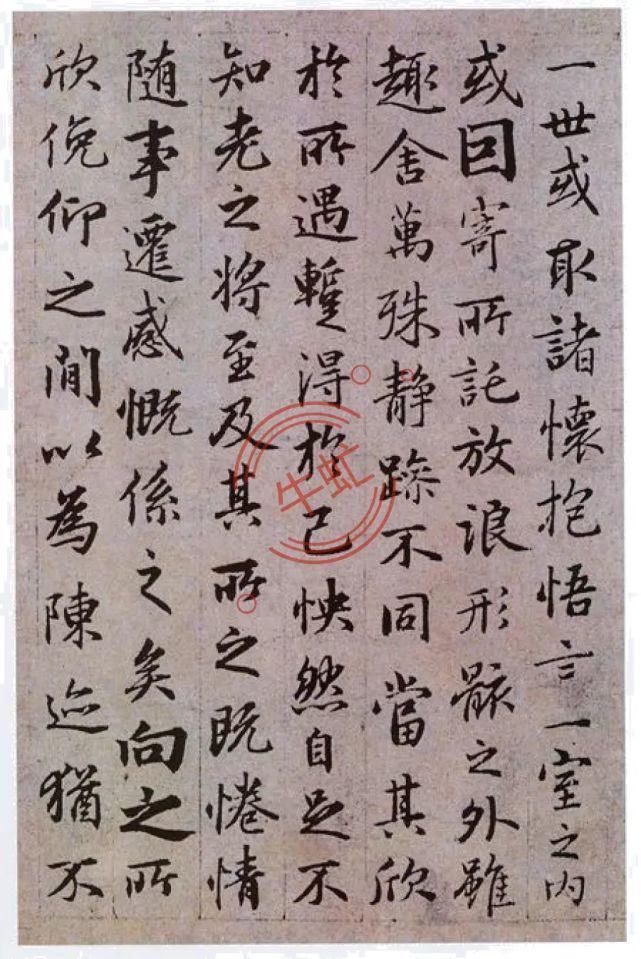 一世或取諸懷抱悟言一室之内
或因寄所託放浪形骸之外雖
趣舍萬殊静躁不同當其欣
於所遇蹔得於己怏然自足不
知老之將至及其所之既惓情
随事遷感慨係之矣向之所
欣俛仰之閒以為陳迹猶不
牛虹